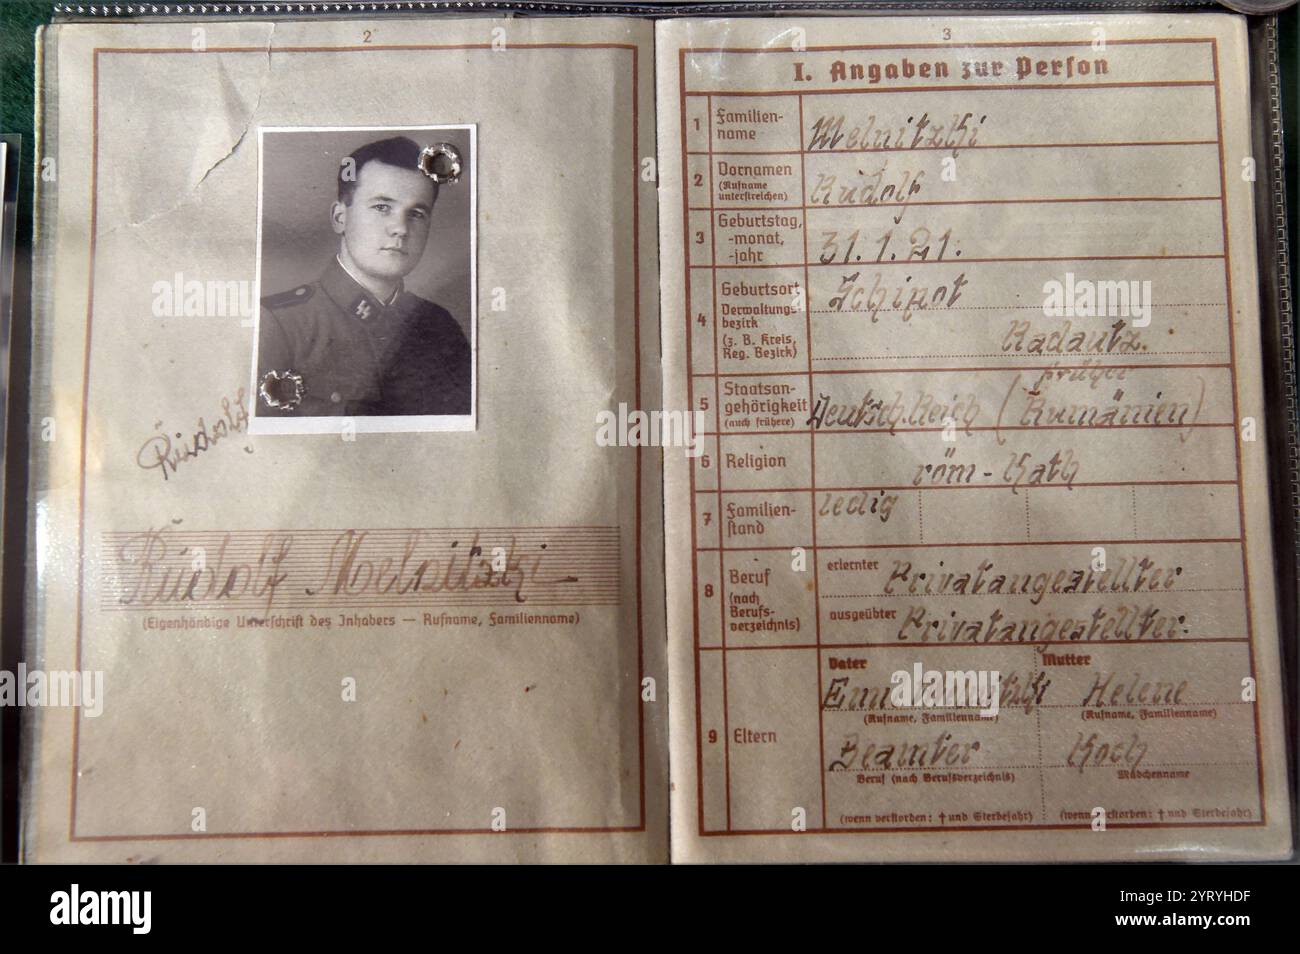 2
Rudolf
Rudolf Melnitzki
(Eigenhändige Unterschrift des Inhabers — Rufname, Familienname)
3
I. Angaben zur Person
1 Familien-
name
Melnitzki
2 Vornamen
(Rufname
unterstreichen)
Rudolf
3 Geburtstag,
-monat,
-jahr
31.1.21.
4 Geburtsort
Verwaltungs-
bezirk
(z. B. Kreis,
Reg. Bezirk)
Schipot
Radautz.
5 Staatsan-
gehörigkeit
(auch frühere)
früher
Deutsch. Reich (Rumänien)
6 Religion
röm - Kath
7 Familien-
stand
ledig
8 Beruf
(nach
Berufs-
verzeichnis)
erlernter Privatangestellter
ausgeübter Privatangestellter.
9 Eltern
Vater Mutter
Melnitzki Helene
(Rufname, Familienname) (Rufname, Familienname)
Beamter Koch
Beruf (nach Berufsverzeichnis) Mädchenname
(wenn verstorben: † und Sterbejahr) (wenn verstorben: † und Sterbejahr)
alamy
Image ID: 2YRYHDF
www.alamy.com